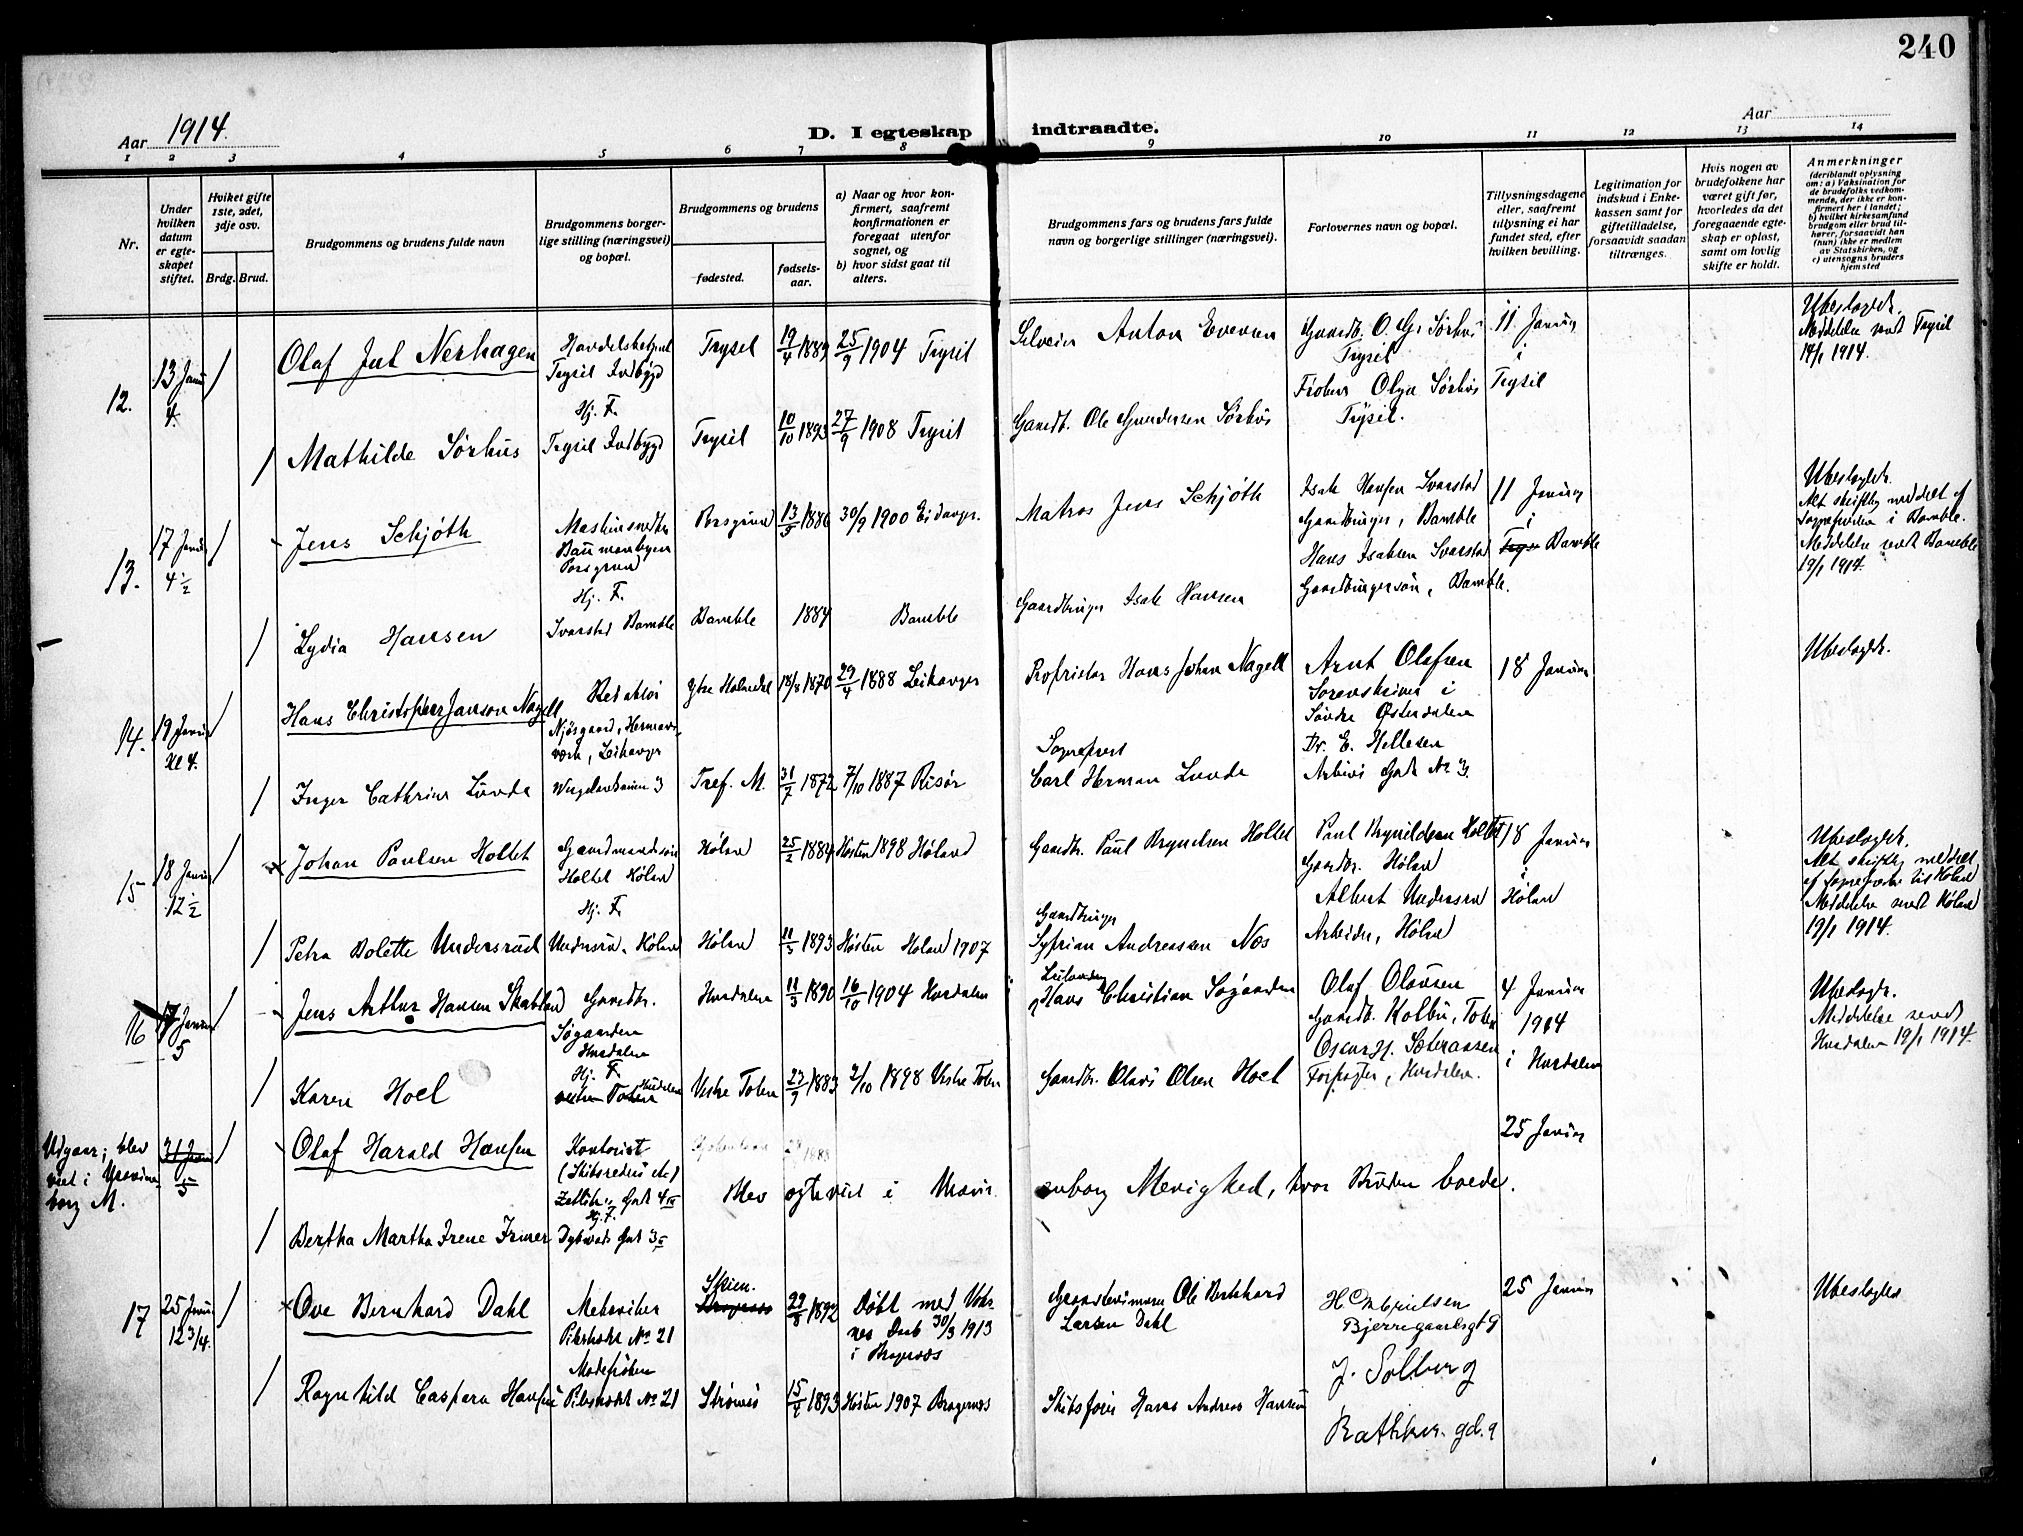 240
Aar 1914.
D. I egteskap indtraadte.
Aar
1 2 3 4 5 6 7 8 9 10 11 12 13 14
Nr.
Under hvilken datum er egteskapet stiftet.
Hvilket gifte 1ste, 2det, 3dje osv.
Brdg. Brud.
Brudgommens og brudens fulde navn
Brudgommens borgerlige stilling (næringsvei) og bopæl.
Brudgommens og brudens
fødested.
fødselsaar.
a) Naar og hvor konfirmert, saafremt konfirmationen er foregaat utenfor sognet, og
b) hvor sidst gaat til alters.
Brudgommens fars og brudens fars fulde navn og borgerlige stillinger (næringsvei).
Forlovernes navn og bopæl.
Tillysningsdagene eller, saafremt tillysning ei har fundet sted, efter hvilken bevilling.
Legitimation for indskud i Enkekassen samt for giftetilladelse, forsaavidt saadan tiltrænges.
Hvis nogen av brudefolkene har været gift før, hvorledes da det foregaaende egteskap er opløst, samt om lovlig skifte er holdt.
Anmerkninger
(deriblandt oplysning om: a) Vaksination for de brudefolks vedkommende, der ikke er konfirmert her i landet; b) hvilket kirkesamfund brudgom eller brud tilhører, forsaavidt han (hun) ikke er medlem av Statskirken, og c) utensogns bruders hjemsted
12.
13 Janu
4.
Olaf Jul Nerhagen
Trysil Indbygd
Hj. F.
Trysel
19/4 1889
25/9 1904 Trysil
Anton Evensen
Gaardb. O. G. Sørhus
Trysil
Olga Sørhus
Trysil.
11 Januar
i
Trysil
Ubeslægt.
Meddelse sendt Trysil
14/1 1914.
Mathilde Sørhus
Trysil Indbygd
Trysil
10/10 1893
27/9 1908 Trysil
Gaardb. Ole Gundersen Sørhus
13.
17 Janu
4 1/2
Jens Schjøth
Porsgrund
Hj. F.
Porsgrund
13/5 1886
30/9 1900 Eidanger.
Matros Jens Schjøth
Isak Hansen Svarstad
Gaardbruger, Bamble
Hans Isaksen Svarstad
Gaardbrugersøn, Bamble.
11 Januar
i
Bamble
Ubeslægt.
Alt skriftlig meddelt af
Sognepresten i Bamble.
Meddelse sendt Bamble
19/1 1914.
Lydia Hansen
Svarstad Bamble
Bamble
1884
Bamble
Gaardbruger Isak Hansen
14.
19 Januar
Kl 4.
Hans Christopher Janson Nagell
Redaktør
Njøsgaard, Hermansverk, Leikanger
Ytre Holmedal
18/8 1870
29/4 1888 Leikanger
Proprietær Hans Johan Nagell
Arnt Olafsen
Sorenskriver i
Søndre Østerdalen
Dr. E. Hellesen
18 Januar
Ubeslægt.
Inger Cathrine Lunde
Wergelandsveien 3
Tref. M.
31/7 1872
7/10 1887 Risør
Sogneprest
Carl Herman Lunde
15
18 Januar
12 1/2
Johan Paulsen Holtet
Gaardmandssøn
Holtet Høland
Hj. F.
Høland
25/2 1884
Høsten 1898 Høland
Gaardbr. Paul Bryndsen Holtet
Paul Brynildsen Holtet
Gaardbr. Høland
Albert Undersrud
Arbeider, Høland
18 Januar
i
Høland
Ubeslægt.
Alt skriftlig meddelt
af sognepresten til Høland
Meddelse sendt Høland
19/1 1914.
Petra Bolette Undersrud
Undersrud, Høland
Høland
11/5 1893
Høsten Høland 1907
Gaardbruger
Syprian Andreassen Næs
16
17 Januar
5
Jens Arthur Hansen Skabland
Gaardbr.
Søgaarden
Hurdalen
Hj. F.
Hurdalen
11/3 1890
16/10 1904 Hurdalen
Hans Christian Søgaarden
Olaf Olausen
Gaardb. Kolbu, Toten
Oscar H. Sæteraasen
Forpagter, Hurdalen.
4 Januar
1914
i Hurdalen
Ubeslægt.
Meddelelse sendt
Hurdalen 19/1 1914.
Karen Hoel
Hurdalen
Vestre Toten
Vestre Toten
23/9 1883
2/10 1898 Vestre Toten
Gaardbr. Olaus Olsen Hoel
Udgaar; blev
viet i Uranienborg M.
31 Janu
5
Olaf Harald Hansen
Kontorist
Hj. F.
Blev ægteviet i Uranienborg Menighed, hvor Bruden boede.
25 Januar
Bertha Martha Irene Irmer
Dybwads Gade 3
17
25 Janu
12 3/4.
Ove Bernhard Dahl
Mekaniker
Pilestrædet No 21
Skien.
29/8 1892
Døbt med
30/3 1913
i Bragernæs
Ole Bernhard
Larsen Dahl
Bjerregaardsgt 9
J. Solberg
25 Januar
Ubeslægtet
Ragnhild Caspera Hansen
Modefrøken
Pilestrædet No 21
Strømsø
15/2 1893
Høsten 1907 Bragernæs
Skibsfører Hans Andreas Hansen